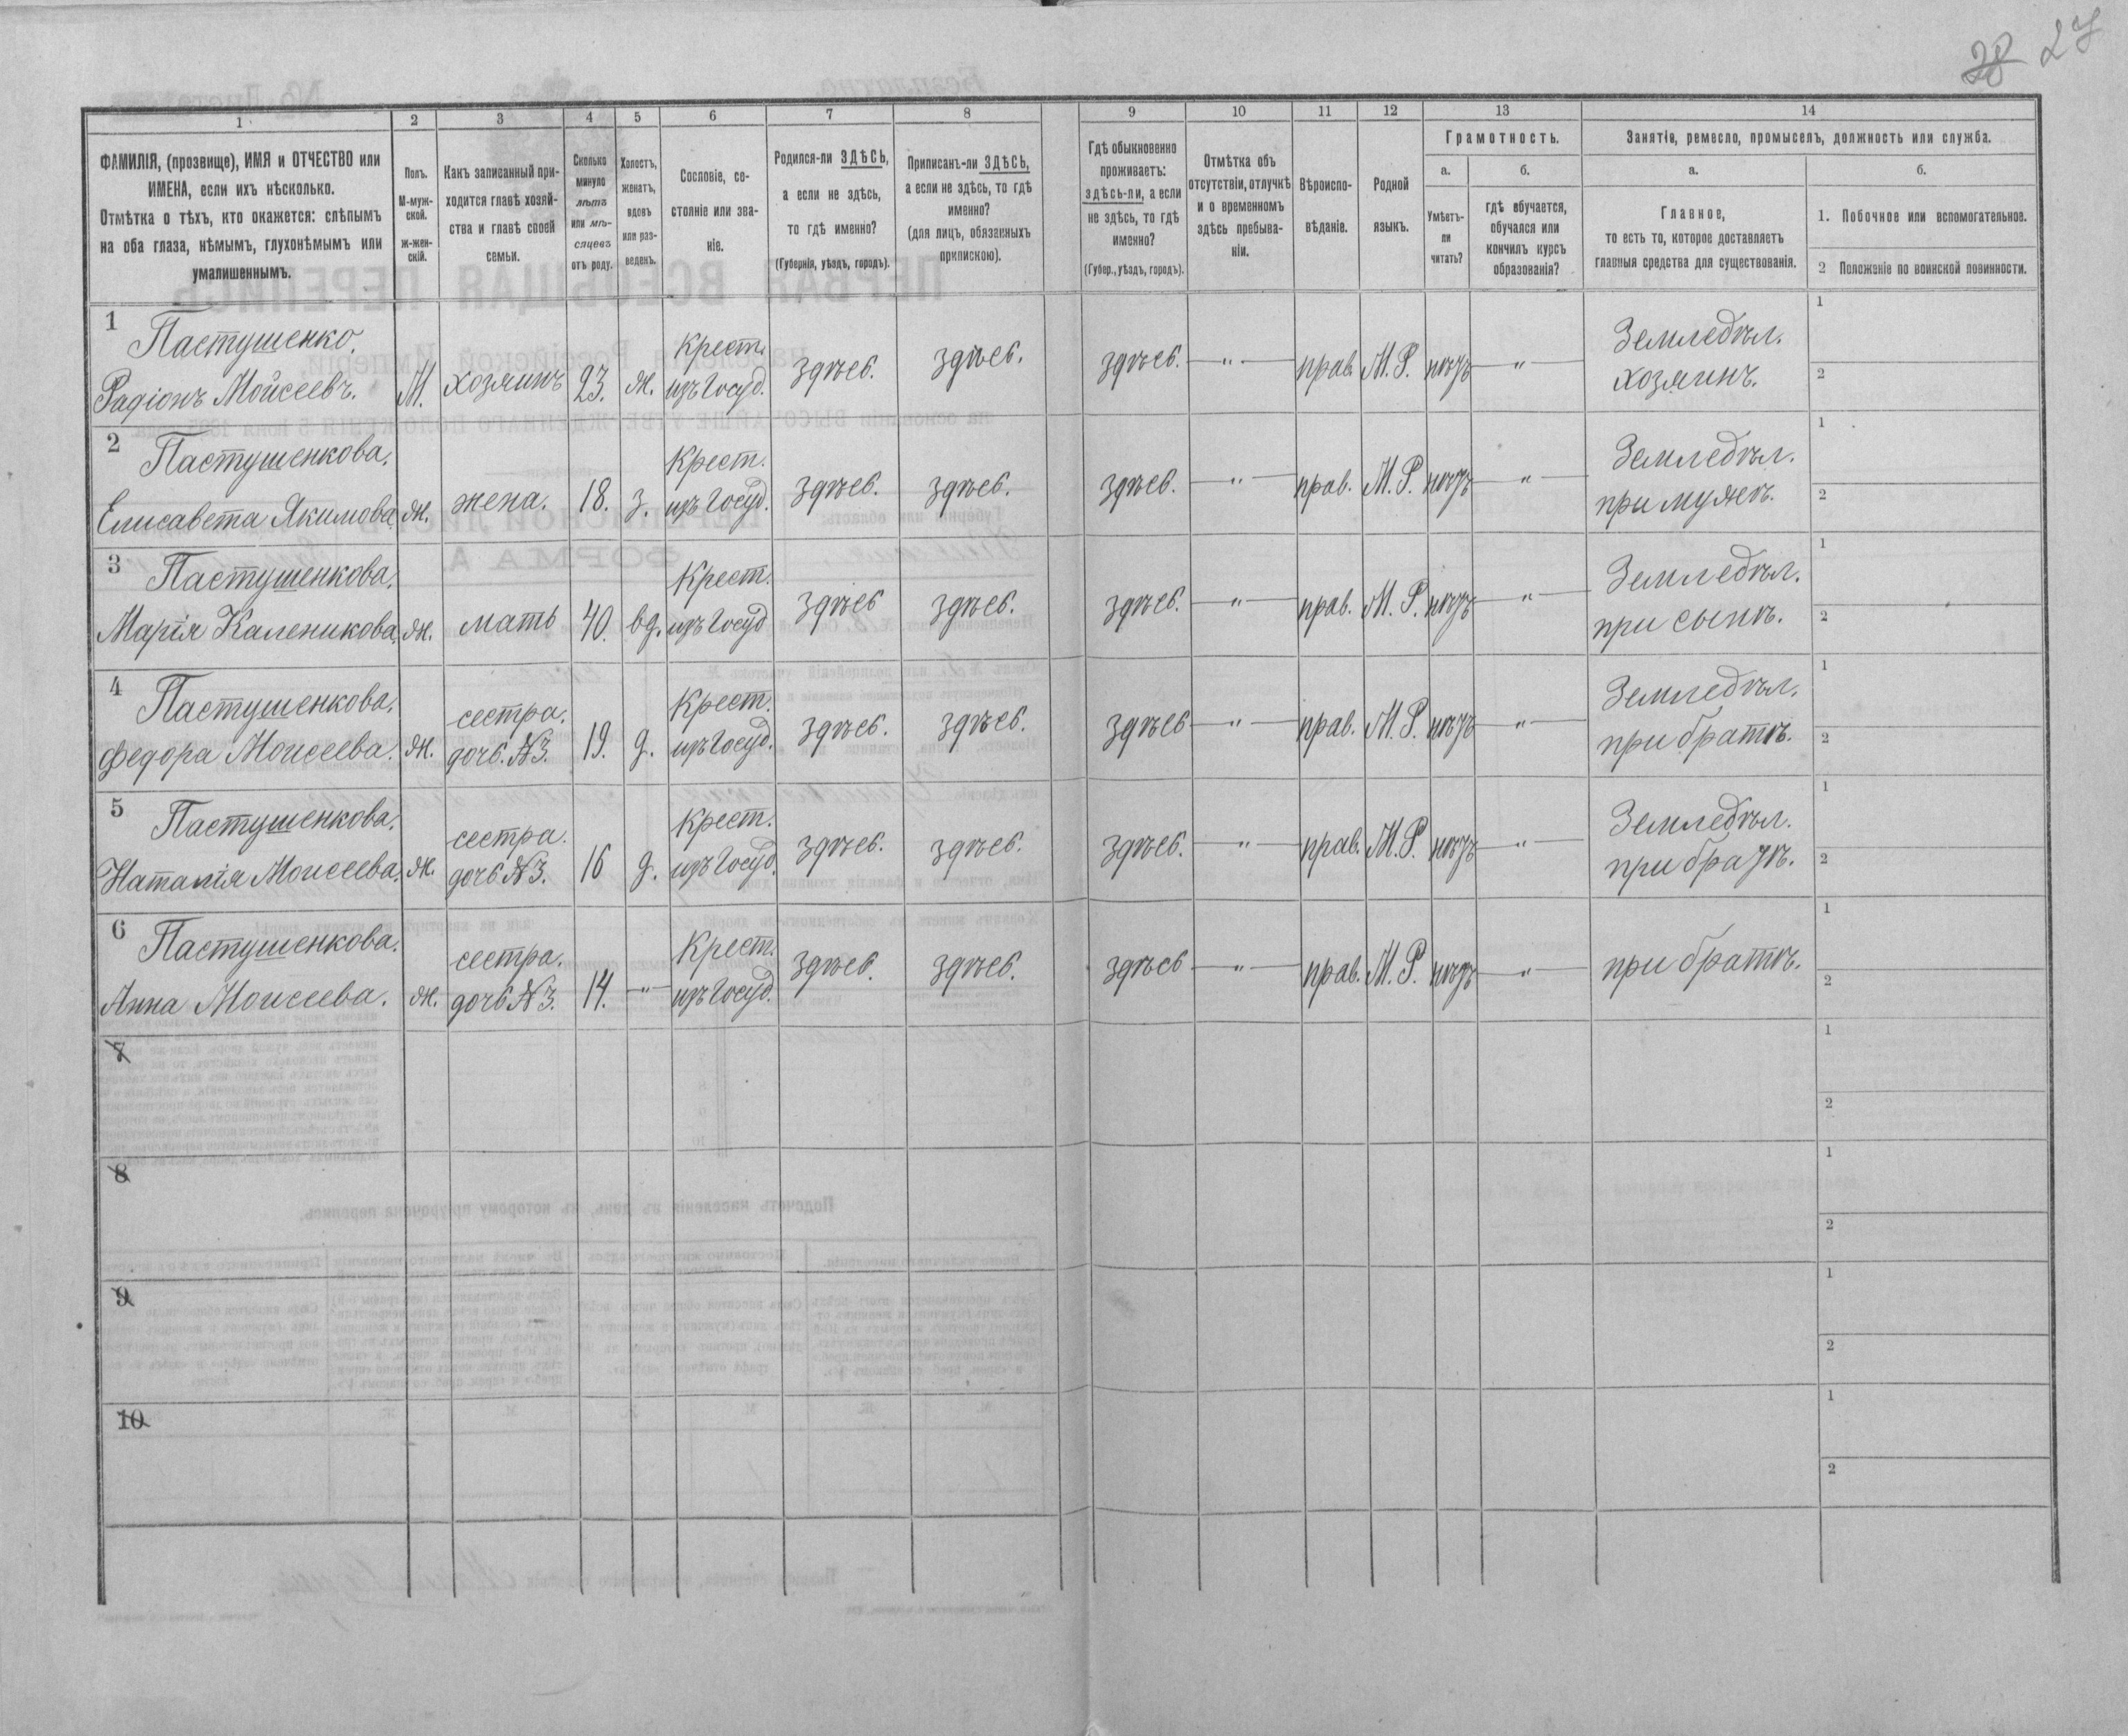 28 27
1 2 3 4 5 6 7 8 9 10 11 12 13 14
ФАМИЛІЯ, (прозвище), ИМЯ и ОТЧЕСТВО или
ИМЕНА, если ихъ нѣсколько.
Отмѣтка о тѣхъ, кто окажется: слѣпымъ
на оба глаза, нѣмымъ, глухонѣмымъ или
умалишеннымъ.
Полъ.
М-муж-
ской.
Ж-жен-
скій.
Какъ записанный при-
ходится главѣ хозяй-
ства и главѣ своей
семьи.
Сколько
минуло
лѣтъ
или мѣ-
сяцевъ
отъ роду.
Холостъ,
женатъ,
вдовъ
или раз-
веденъ.
Сословіе, со-
стояніе или зва-
ніе.
Родился-ли ЗДѢСЬ,
а если не здѣсь,
то гдѣ именно?
(Губернія, уѣздъ, городъ).
Приписанъ-ли ЗДѢСЬ,
а если не здѣсь, то гдѣ
именно?
(для лицъ, обязанныхъ
припискою).
Гдѣ обыкновенно
проживаетъ:
здѣсь-ли, а если
не здѣсь, то гдѣ
именно?
(Губер., уѣздъ, городъ).
Отмѣтка объ
отсутствіи, отлучкѣ
и о временномъ
здѣсь пребыва-
ніи.
Вѣроиспо-
вѣданіе.
Родной
языкъ.
Грамотность.
а. б.
Умѣетъ-
ли
читать?
гдѣ обучается,
обучался или
кончилъ курсъ
образованія?
Занятія, ремесло, промыселъ, должность или служба.
а. б.
Главное,
то есть то, которое доставляетъ
главныя средства для существованія.
1. Побочное или вспомогательное.
2 Положеніе по воинской повинности.
1 Пастушенко. Крест. Земледѣл. 1
Радіонъ Мойсеевъ. М. хозяинъ 23. ж. изъ Госуд. здѣсь. здѣсь. здѣсь. — " — прав. М. Р. нѣтъ — " — хозяинъ. 2
2 Пастушенкова. Крест. Земледѣл. 1
Елисавета Якимова ж. жена. 18. з. изъ Госуд. здѣсь. здѣсь. здѣсь. — " — прав. М. Р. нѣтъ — " — при мужѣ. 2
3 Пастушенкова. Крест. Земледѣл. 1
Марія Каленикова. ж. мать 40. вд. изъ Госуд здѣсь здѣсь. здѣсь. — " — прав. М. Р. нѣтъ — " — при сынѣ. 2
4 Пастушенкова. сестра. Крест. Земледѣл. 1
Федора Моисеева. ж. дочь. №3. 19. д. изъ Госуд. здѣсь. здѣсь. здѣсь — " — прав. М. Р. нѣтъ — " — при братѣ. 2
5 Пастушенкова. сестра. Крест. Земледѣл. 1
Наталія Моисеева. ж. дочь №3. 16 д. изъ Госуд. здѣсь. здѣсь. здѣсь. — " — прав. М. Р. нѣтъ — " — при братѣ. 2
6 Пастушенкова. сестра. Крест. 1
Анна Моисеева. ж. дочь №3. 14. — " — изъ Госуд. здѣсь. здѣсь. здѣсь — " — прав. М. Р. нѣтъ — " — при братѣ. 2
7 1
2
8 1
2
9 1
2
10 1
2